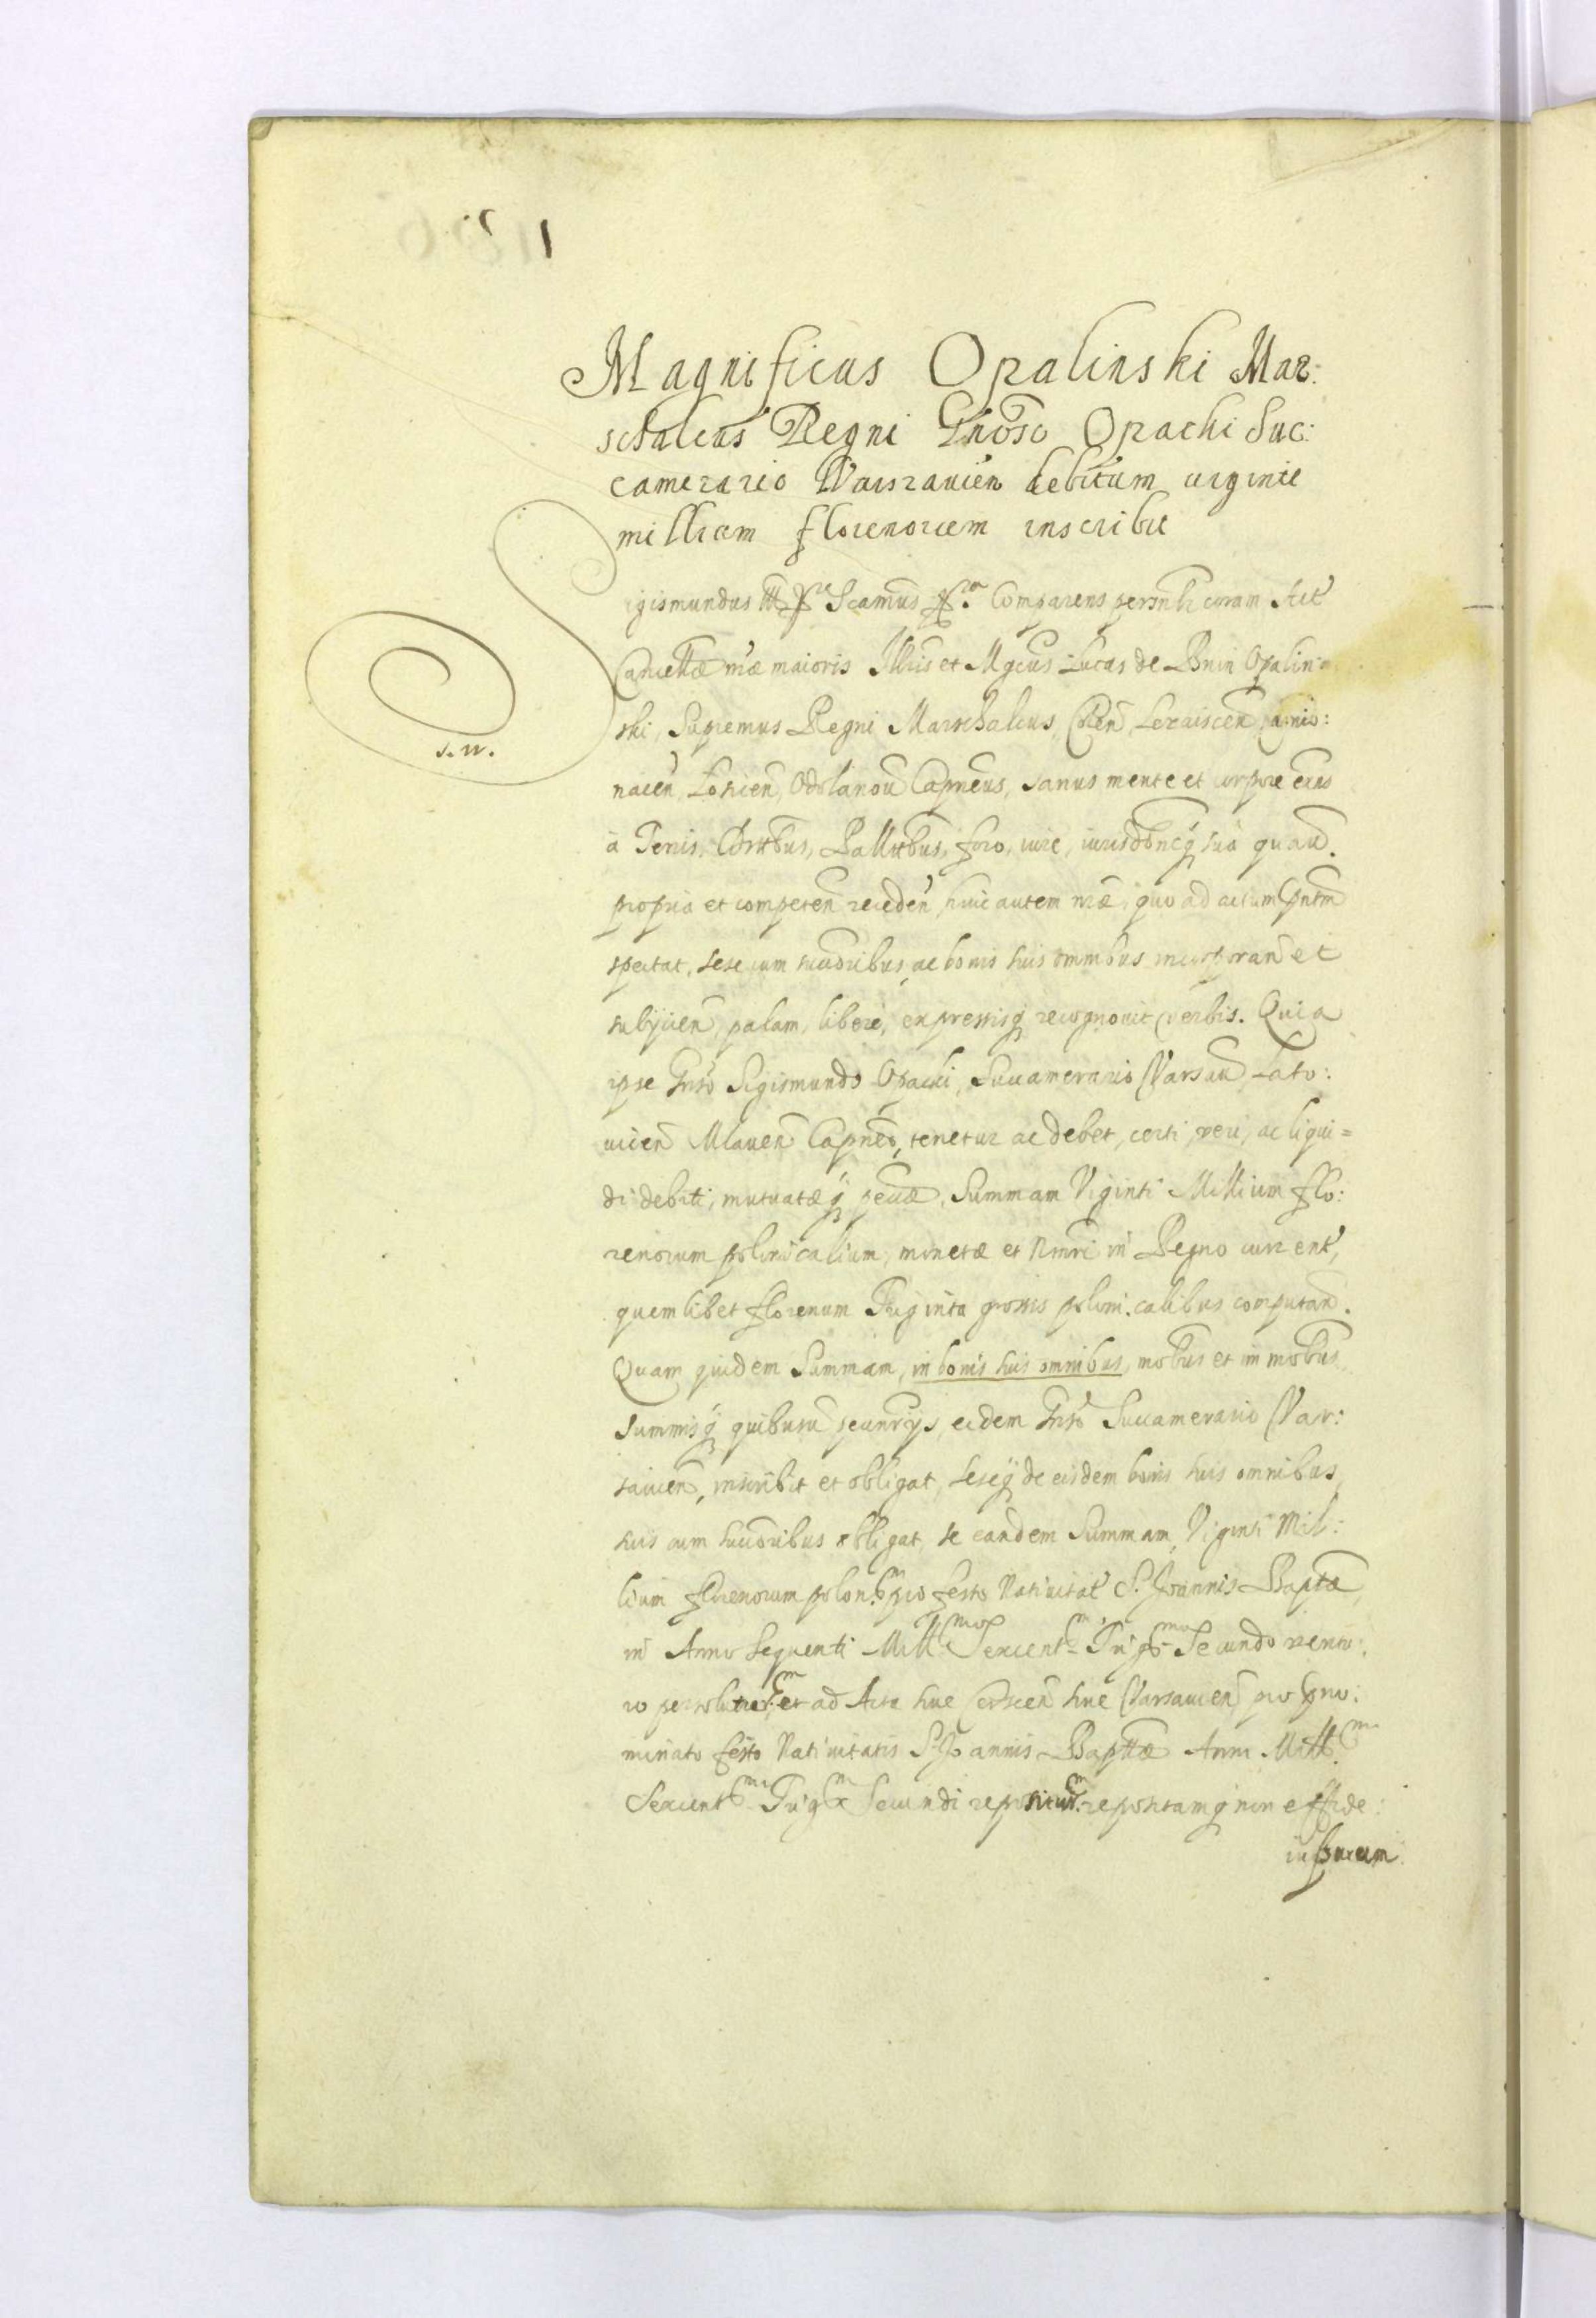 Magnificus Opalinski Mar:
schalcus Regni Gnoso Opacki Suc:
camerario Warszavien debitum viginti
millium florenorum inscribit
Sigismundus III Scamus Comparens personlr coram Act
Cancellae mae maioris Illris et Mgcus Lucas de Bnin Opalin
ski, Supremus Regni Marschalcus, Lezaiscen
nacen, Loicien, Odolanou Capneus, sanus mente et corpore exns
à Terris, Distbus, Pallatbus, foro, iure, iurisdoneq suà quauis.
propria et competen receden, huic autem mae, quo ad actum pntm
spectat, sese cum succoribus, ac bonis suis omnibus incorporan et
subijcien, palam, liberè, expressisq recognouit verbis. Quia
ipse Gnso Sigismundo Opacki, Succamerario Varsau Lato:
uicien Mlauen Capneo, tenetur ac debet, certi, veri, ac liqui=
di debiti, mutuataeq pecuae, Summam Viginti Millium flo:
renorum polonicalium, monetae et Numri in Regno current,
quemlibet florenum Triginta grossis polonicalibus computan.
Quam quidem Summam, in bonis suis omnibus, mobbus et immobbus
summisq quibusu pecunrijs, eidem Gnso Succamerario Var:
sauien, inscribit et obligat, seseq de eisdem bonis suis omnibus,
suis cum succoribus obligat, se eandem Summam, Viginti Mil:
lium florenorum polon. pro festo Natiuitat S. Joannis Baptae,
in Anno sequenti Mill Sexcent Trig Secundo ventu:
ro persoluturm, et ad Acta hue Castren hue Varsauien pro pno:
minato festo Natiuitatis S. Joannis Baptae Anni Mill
Sexcent Trig Secundi repositurm, repositamq non effide:
iussurum
s. w.